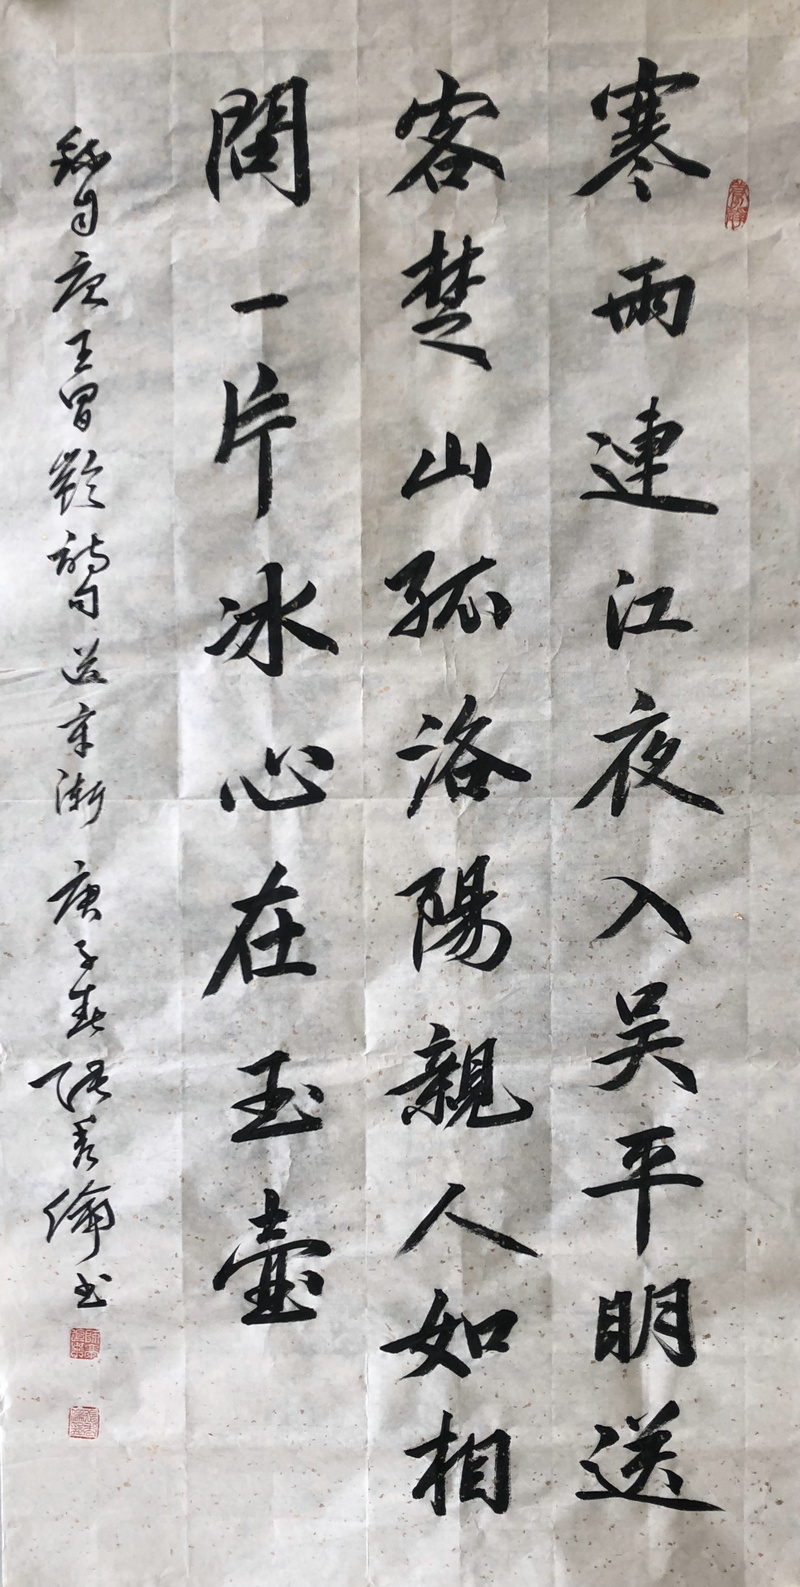 寒雨連江夜入吴平明送
客楚山孤洛陽親人如相
問一片冰心在玉壺
錄自唐王昌齡詩句送辛漸 庚子春 張 倫书